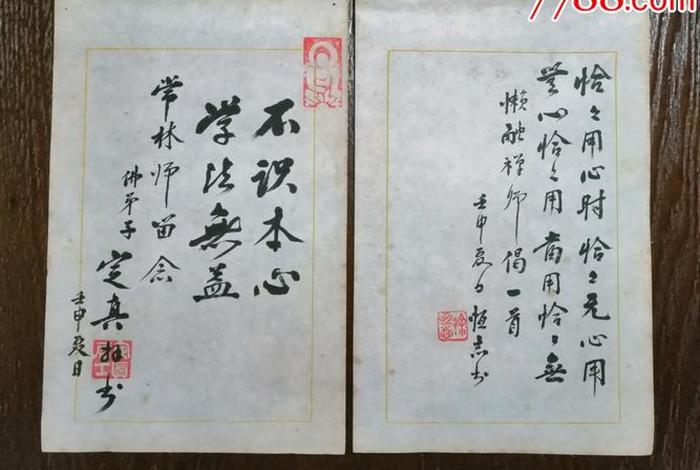 7788.com
恰〻用心时恰〻无心用
無心恰〻用常用恰〻無
懒融禅师偈一首
壬申夏日恒志书
不识本心
学法無益
常林师留念
佛弟子定真拜书
壬申夏日